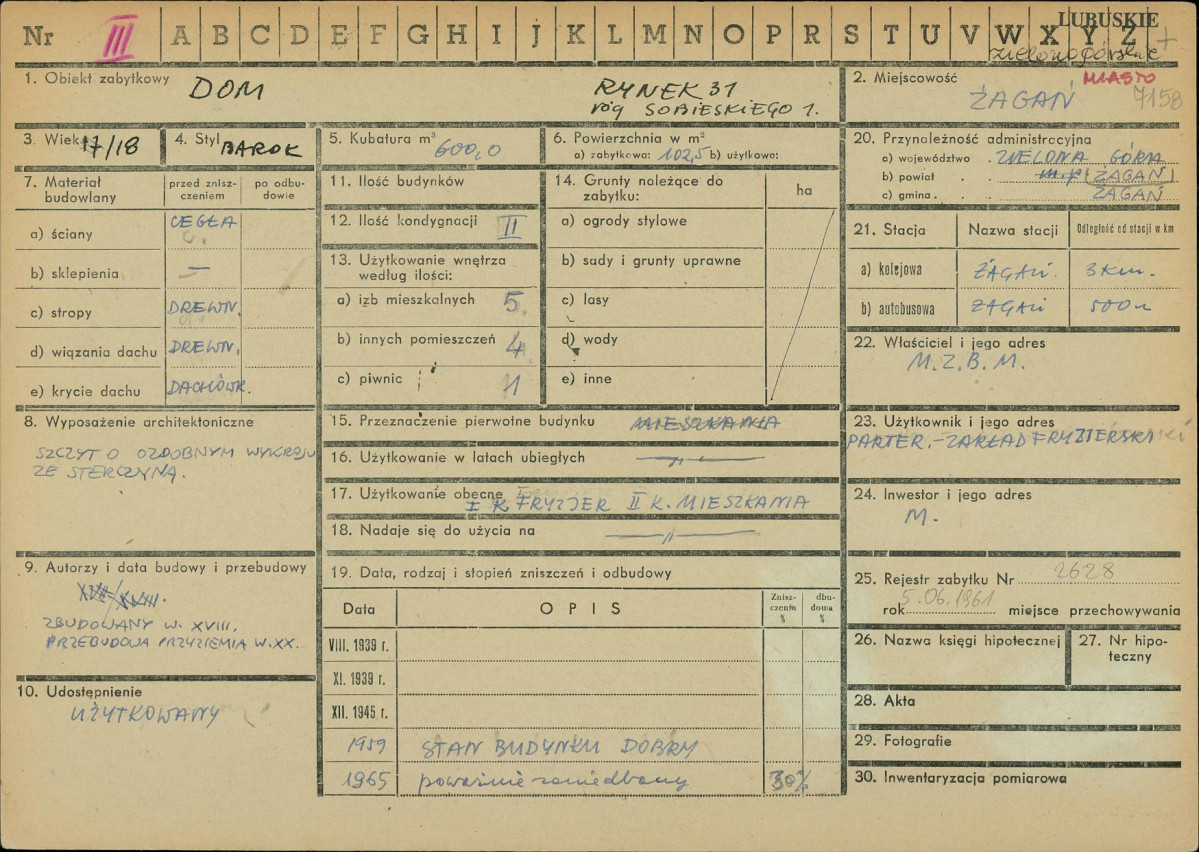 Nr III A B C D E F G H I J K L M N O P R S T U V W X Y Z
LUBUSKIE
zielonogórskie
1. Obiekt zabytkowy DOM
RYNEK 31
róg SOBIESKIEGO 1.
2. Miejscowość MIASTO
ŻAGAŃ 7158
3. Wiek 17/18
4. Styl BAROK
5. Kubatura m³ 600,0
6. Powierzchnia w m²
a) zabytkowa: 102,5 b) użytkowa:
20. Przynależność administracyjna
a) województwo ZIELONA GÓRA
b) powiat m.p (ŻAGAŃ)
c) gmina ŻAGAŃ
7. Materiał budowlany
przed znisz-
czeniem
po odbu-
dowie
a) ściany CEGŁA
b) sklepienia —
c) stropy DREWN.
d) wiązania dachu DREWN.
e) krycie dachu DACHÓWK.
11. Ilość budynków
12. Ilość kondygnacji II
13. Użytkowanie wnętrza
według ilości:
a) izb mieszkalnych 5
b) innych pomieszczeń 4
c) piwnic 1
14. Grunty należące do
zabytku:
ha
a) ogrody stylowe
b) sady i grunty uprawne
c) lasy
d) wody
e) inne
21. Stacja
Nazwa stacji
Odległość od stacji w km
a) kolejowa ŻAGAŃ. 3 km.
b) autobusowa ŻAGAŃ 500 m
22. Właściciel i jego adres
M.Z.B.M.
8. Wyposażenie architektoniczne
SZCZYT O OZDOBNYM WYKROJU
ZE STERCZYNĄ.
15. Przeznaczenie pierwotne budynku MIESZKANIA
16. Użytkowanie w latach ubiegłych —"—
17. Użytkowanie obecne
I K FRYZJER II K. MIESZKANIA
18. Nadaje się do użycia na —"—
23. Użytkownik i jego adres
PARTER.-ZAKŁAD FRYZJERSKI
24. Inwestor i jego adres
M.
9. Autorzy i data budowy i przebudowy
XVII/XVIII.
ZBUDOWANY W. XVIII.
PRZEBUDOWA PRZYZIEMIA W. XX.
10. Udostępnienie
UŻYTKOWANY
19. Data, rodzaj i stopień zniszczeń i odbudowy
Data
OPIS
Znisz-
czenia
%
dbu-
dowa
%
VIII. 1939 r.
XI. 1939 r.
XII. 1945 r.
1959 STAN BUDYNKU DOBRY
1965 poważnie zaniedbany 30%
25. Rejestr zabytku Nr 2628
rok 5.06.1961 miejsce przechowywania
26. Nazwa księgi hipotecznej
27. Nr hipo-
teczny
28. Akta
29. Fotografie
30. Inwentaryzacja pomiarowa